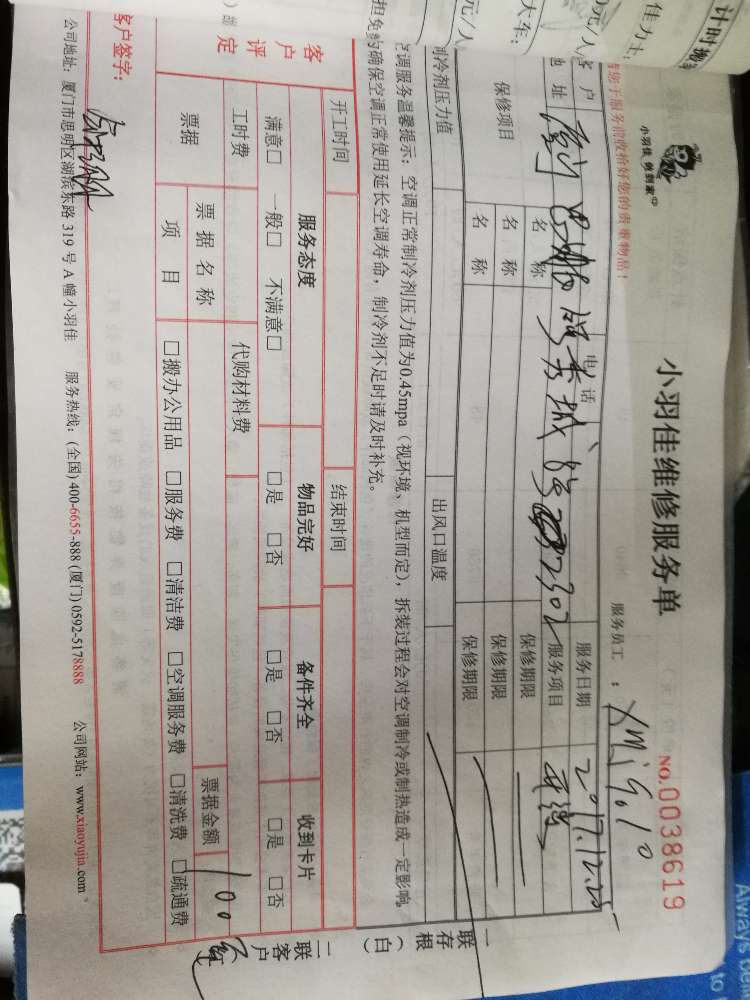 计时搬
佳力士:
0元/人
大车:
元/人
小羽佳 做到家
小羽佳维修服务单
NO.0038619
服务员工:
请您于服务前收拾好您的贵重物品!
客户
电话
服务日期 2017.12.25
地址
服务项目
保修项目
名 称
保修期限
名 称
保修期限
名 称
保修期限
制冷剂压力值
出风口温度
空调服务温馨提示:空调正常制冷剂压力值为0.45mpa(视环境、机型而定),拆装过程会对空调制冷或制热造成一定影响
确保空调正常使用延长空调寿命,制冷剂不足时请及时补充。
开工时间
结束时间
客户评定
服务态度
物品完好
备件齐全
收到卡片
满意□ 一般□ 不满意□
□是 □否
□是 □否
□是 □否
工时费
代购材料费
票据
票据名称
票据金额 100
项 目
□搬办公用品 □服务费 □清洁费 □空调服务费 □清洗费 □疏通费
客户签字:
公司地址:厦门市思明区湖滨东路 319 号 A 幢小羽佳 服务热线:(全国) 400-6655-888 (厦门) 0592-5178888 公司网站:www.xiaoyujia.com
一存根(白)
二客户联
Always
to